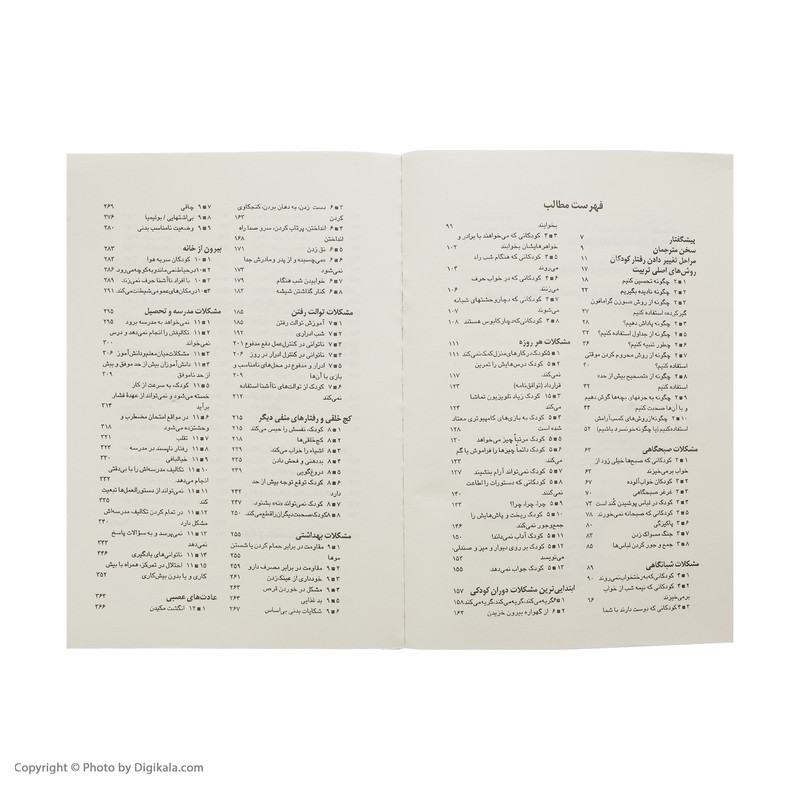 فهرست مطالب
پیشگفتار ۷
سخن مترجمان ۹
مراحل تغییر دادن رفتار کودکان ۱۱
روش‌های اصلی تربیت ۱۷
۲■۱ چگونه تحسین کنیم ۱۸
۲■۲ چگونه نادیده بگیریم ۲۲
۲■۳ چگونه از روش «سوزن گرامافون
گیرکرده» استفاده کنیم
۲■۴ چگونه پاداش دهیم؟ ۲۸
۲■۵ چگونه از جداول استفاده کنیم؟ ۳۳
۲■۶ چطور تنبیه کنیم؟ ۳۶
۲■۷ چگونه از روش محروم کردن موقتی
استفاده کنیم؟ ۴۰
۲■۸ چگونه از «تصحیح بیش از حد»
استفاده کنیم ۴۲
۲■۹ چگونه به حرفهای بچه‌ها گوش دهیم
و با آن‌ها صحبت کنیم ۴۴
۲■۱۰ چگونه از روش‌های کسب آرامش
استفاده کنیم (یا چگونه خونسرد باشیم) ۵۲
مشکلات صبحگاهی ۶۳
۳■۱ کودکانی که صبح‌ها خیلی زود از
خواب برمی‌خیزند ۶۳
۳■۲ کودکان خواب‌آلوده ۶۷
۳■۳ غرغر صبحگاهی ۷۰
۳■۴ کودک در لباس پوشیدن کُند است ۷۳
۳■۵ کودکانی که صبحانه نمی‌خورند ۷۸
۳■۶ پاکیزگی ۸۰
۳■۷ جنگ مسواک زدن ۸۲
۳■۸ جمع و جور کردن لباس‌ها ۸۵
مشکلات شبانگاهی ۸۹
۴■۱ کودکانی که به رختخواب نمی‌روند ۹۰
۴■۲ کودکانی که نیمه شب از خواب
برمی‌خیزند ۹۶
۴■۳ کودکانی که دوست دارند با شما
بخوابند ۹۹
۴■۴ کودکانی که می‌خواهند با برادر و
خواهرهایشان بخوابند ۱۰۲
۴■۵ کودکانی که هنگام شب راه
می‌روند ۱۰۴
۴■۶ کودکانی که در خواب حرف
می‌زنند ۱۰۶
۴■۷ کودکانی که دچار وحشتهای شبانه
می‌شوند ۱۰۷
۴■۸ کودکانی که دچار کابوس هستند ۱۰۸
مشکلات هر روزه ۱۱۱
۵■۱ کودک در کارهای منزل کمک نمی‌کند ۱۱۱
۵■۲ کودک درس‌هایش را تمرین
نمی‌کند ۱۱۷
قرارداد (توافق‌نامه) ۱۲۳
۵■۳ کودک زیاد تلویزیون تماشا
می‌کند ۱۲۴
۵■۴ کودک به بازی‌های کامپیوتری معتاد
شده است ۱۲۸
۵■۵ کودک مرتباً چیز می‌خواهد ۱۳۰
۵■۶ کودک دائماً چیزها را فراموش یا گم
می‌کند ۱۳۳
۵■۷ کودک نمی‌تواند آرام بنشیند ۱۳۷
۵■۸ کودکانی که دستورات را اطاعت
نمی‌کنند ۱۴۰
۵■۹ چرا، چرا، چرا؟ ۱۴۴
۵■۱۰ کودک ریخت و پاش‌هایش را
جمع‌وجور نمی‌کند ۱۴۶
۵■۱۱ کودک آداب نمی‌داند! ۱۵۰
۵■۱۲ کودک بر روی دیوار و میز و صندلی،
می‌نویسد ۱۵۳
۵■۱۳ کودک جواب نمی‌دهد ۱۵۵
ابتدایی‌ترین مشکلات دوران کودکی ۱۵۷
۶■۱ گریه می‌کند، گریه می‌کند، گریه می‌کند ۱۵۸
۶■۲ از گهواره بیرون خزیدن ۱۶۲
۶■۳ دست زدن، به دهان بردن، کنجکاوی
کردن ۱۶۳
۶■۴ انداختن، پرتاب کردن، سرو صدا راه
انداختن ۱۶۸
۶■۵ نق زدن ۱۷۱
۶■۶ «می‌چسبد» و از پدر و مادرش جدا
نمی‌شود ۱۷۳
۶■۷ خوابیدن شب هنگام ۱۷۹
۶■۸ کنار گذاشتن شیشه ۱۸۲
مشکلات توالت رفتن ۱۸۵
۷■۱ آموزش توالت رفتن ۱۸۵
۷■۲ شب ادراری ۱۹۲
۷■۳ ناتوانی در کنترل عمل دفع مدفوع ۲۰۱
۷■۴ ناتوانی در کنترل ادرار در روز ۲۰۶
۷■۵ ادرار و مدفوع در محل‌های نامناسب و
بازی با آن‌ها ۲۰۹
۷■۶ کودک از توالت‌های ناآشنا استفاده
نمی‌کند ۲۱۲
کج خلقی و رفتارهای منفی دیگر ۲۱۵
۸■۱ کودک، نفسش را حبس می‌کند ۲۱۵
۸■۲ کج‌خلقی‌ها ۲۱۸
۸■۳ اشیاء را خراب می‌کند. ۲۳۱
۸■۴ بددهنی و فحش دادن ۲۳۵
۸■۵ دروغ‌گویی ۲۳۹
۸■۶ کودک توقع توجه بیش از حد
دارد ۲۴۲
۸■۷ کودک نمی‌تواند «نه» بشنود ۲۴۷
۸■۸ کودک صحبت دیگران را قطع می‌کند ۲۵۰
مشکلات بهداشتی ۲۵۵
۹■۱ مقاومت در برابر حمام کردن یا شستن
موها ۲۵۵
۹■۲ مقاومت در برابر مصرف دارو ۲۵۹
۹■۳ خودداری از عینک‌زدن ۲۶۱
۹■۴ مشکل در خوردن قرص ۲۶۲
۹■۵ بد غذایی ۲۶۳
۹■۶ شکایات بدنی بی‌اساس ۲۶۷
۹■۷ چاقی ۲۶۹
۹■۸ بی‌اشتهایی / بولیمیا ۲۷۶
۹■۹ وضعیت نامناسب بدنی ۲۸۰
بیرون از خانه ۲۸۳
۱۰■۱ کودکان سربه هوا ۲۸۳
۱۰■۲ در حیاط نمی‌ماند و به کوچه می‌رود ۲۸۶
۱۰■۳ با افراد ناآشنا حرف نمی‌زند ۲۸۹
۱۰■۴ در مکان‌های عمومی شیطنت می‌کند ۲۹۱
مشکلات مدرسه و تحصیل ۲۹۵
۱۱■۱ نمی‌خواهد به مدرسه برود ۲۹۵
۱۱■۲ تکالیفش را انجام نمی‌دهد و درس
نمی‌خواند ۳۰۰
۱۱■۳ مشکلات میان معلم و دانش‌آموز ۳۰۶
۱۱■۴ دانش‌آموزان بیش از حد موفق و بیش
از حد ناموفق ۳۰۹
۱۱■۵ کودک، به سرعت از کار
خسته می‌شود و نمی‌تواند از عهدهٔ فشار
برآید ۳۱۴
۱۱■۶ در مواقع امتحان مضطرب و
وحشتزده می‌شود ۳۱۸
۱۱■۷ تقلب ۳۲۱
۱۱■۸ رفتار ناپسند در مدرسه ۳۲۴
۱۱■۹ خیالبافی ۳۳۰
۱۱■۱۰ تکالیف مدرسه‌اش را با بی‌دقتی
انجام می‌دهد ۳۳۲
۱۱■۱۱ نمی‌تواند از دستورالعمل‌ها تبعیت
کند ۳۳۵
۱۱■۱۲ در تمام کردن تکالیف مدرسه‌اش
مشکل دارد ۳۴۰
۱۱■۱۳ نمی‌پرسد و به سؤالات پاسخ
نمی‌دهد
۱۱■۱۴ ناتوانی‌های یادگیری ۳۴۶
۱۱■۱۵ اختلال در تمرکز، همراه با بیش
کاری و یا بدون بیش‌کاری ۳۵۲
عادت‌های عصبی ۳۶۳
۱۲■۱ انگشت مکیدن ۳۶۶
Copyright © Photo by Digikala.com